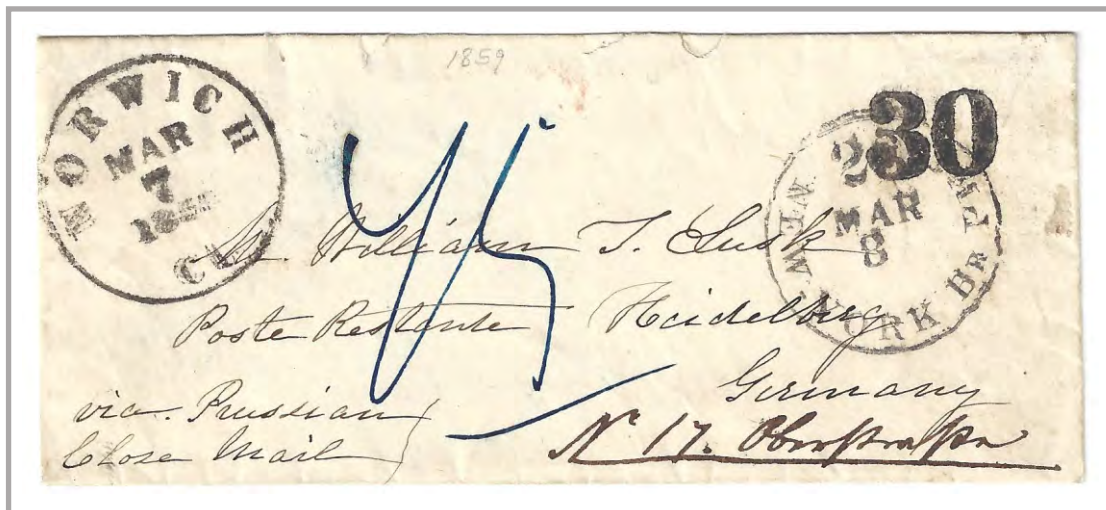 1859
NORWICH
MAR
7
CT.
30
NEW YORK Br PKT
MAR
8
45
Mr. William T. Lusk
Poste Restante Heidelberg
Germany
via. Prussian
Close Mail
No 17. Oberstrasse